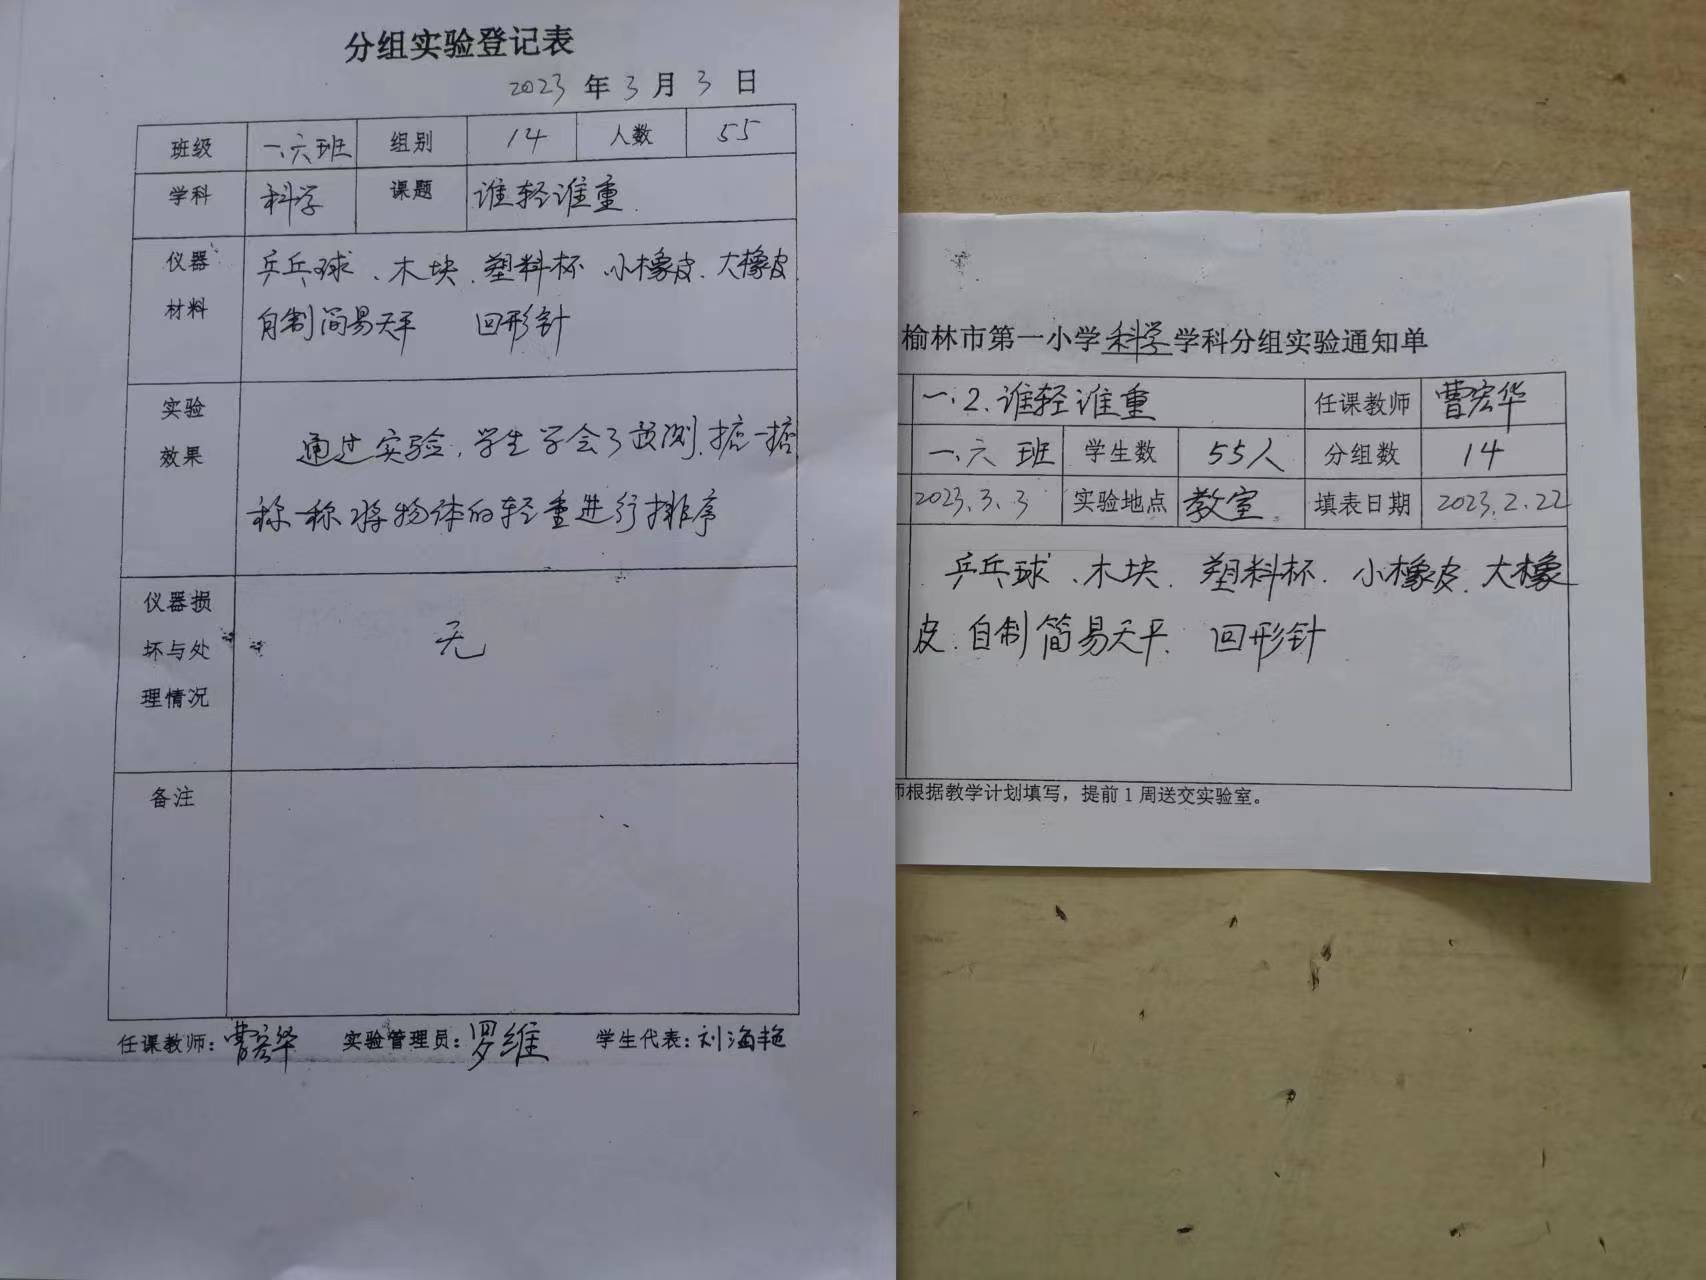 分组实验登记表
2023 年 3 月 3 日
班级 一.六班 组别 14 人数 55
学科 科学 课题 谁轻谁重
仪器材料 乒乓球、木块、塑料杯、小橡皮、大橡皮
自制简易天平 回形针
实验效果 通过实验,学生学会了预测、掂一掂
称一称将物体的轻重进行排序
仪器损坏与处理情况 无
备注
任课教师:曹宏华 实验管理员:罗维 学生代表:刘海艳
榆林市第一小学科学学科分组实验通知单
一.2.谁轻谁重 任课教师 曹宏华
一.六 班 学生数 55人 分组数 14
2023.3.3 实验地点 教室 填表日期 2023.2.22
乒乓球、木块、塑料杯、小橡皮、大橡
皮、自制简易天平、回形针
师根据教学计划填写,提前1周送交实验室。